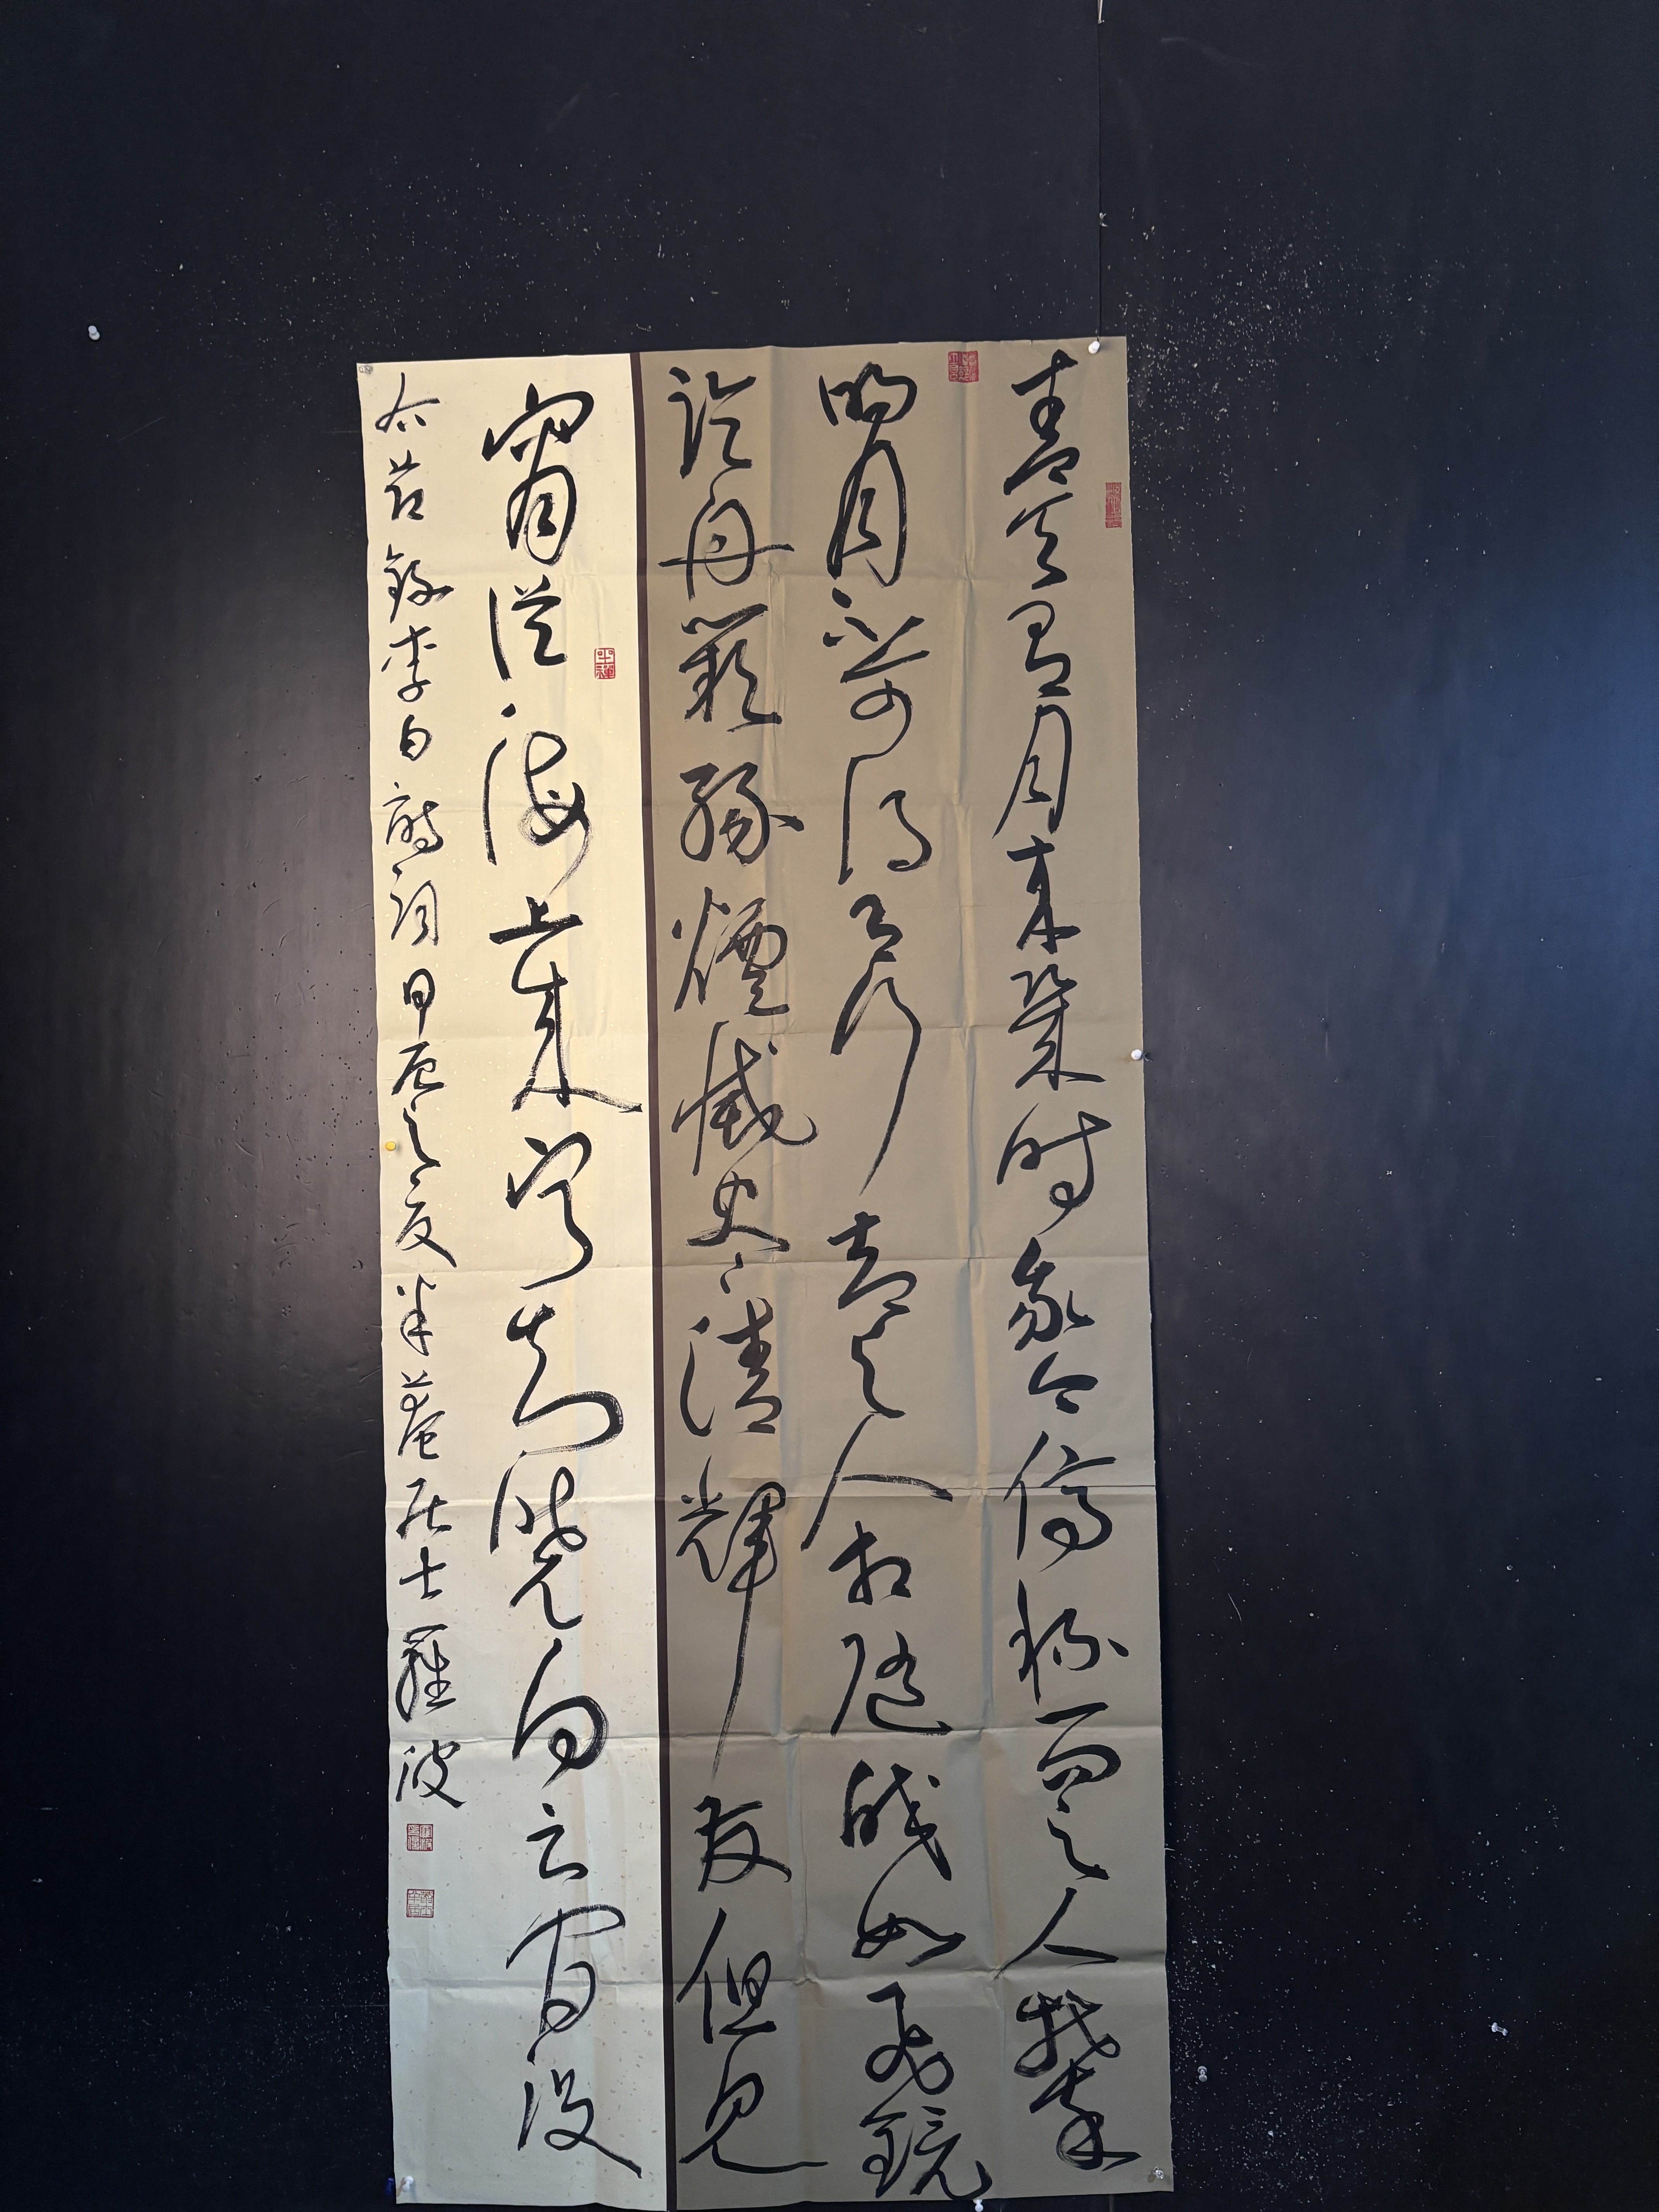 青天有月来幾時我今停杯一問之人攀
明月不可得月行却与人相随皎如飛鏡
臨丹闕緑煙滅盡清輝發但見
宵從海上来寧知曉向雲間没
右節錄李白诗词甲辰之夏半菴居士羅波